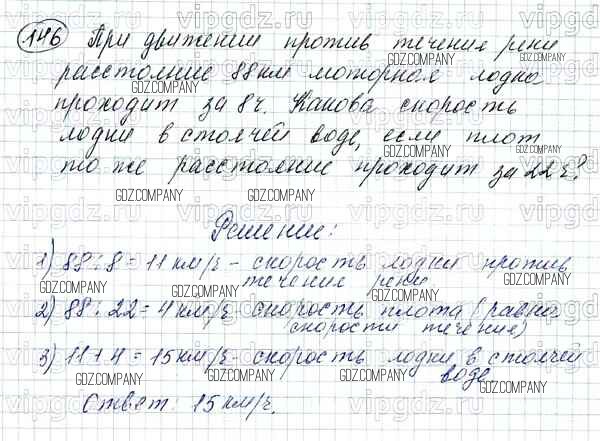 146 При движении против течения реки
расстояние 88 км моторная лодка
проходит за 8 ч. Какова скорость
лодки в стоячей воде, если плот
то же расстояние проходит за 22 ч?
Решение:
1) 88 : 8 = 11 км/ч - скорость лодки против
течения реки
2) 88 : 22 = 4 км/ч скорость плота (равна
скорости течения)
3) 11 + 4 = 15 км/ч - скорость лодки в стоячей
воде
Ответ: 15 км/ч.